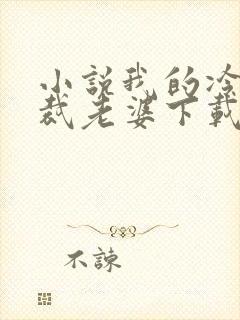 小説我的冷
裁老婆下載
不諫